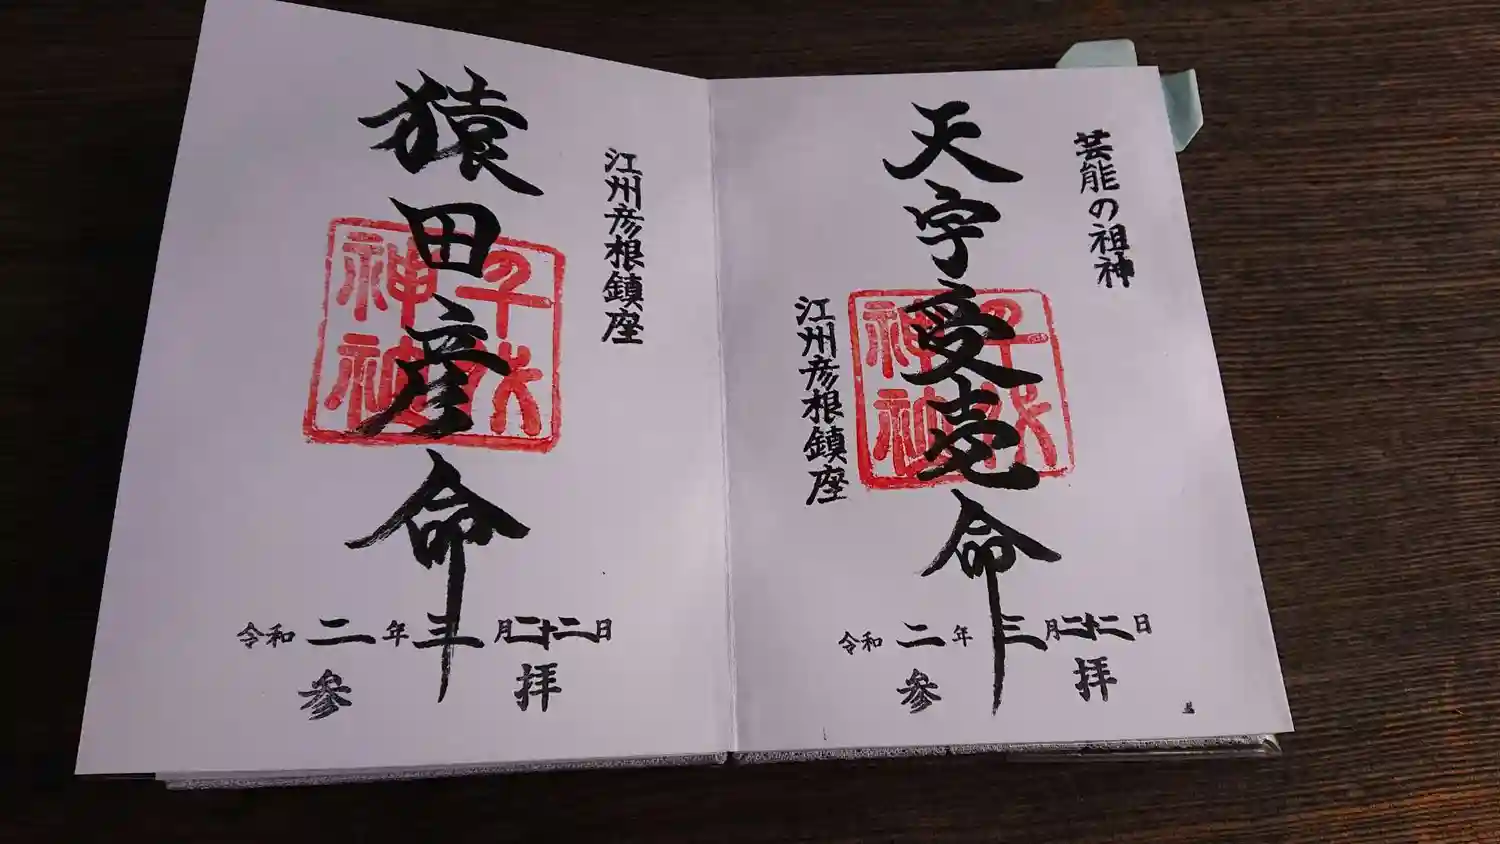 芸能の祖神
天宇受売命
江州彦根鎮座
令和二年三月二十二日
参拝
千代の神社
江州彦根鎮座
猿田彦命
令和二年三月二十二日
参拝
千代の神社